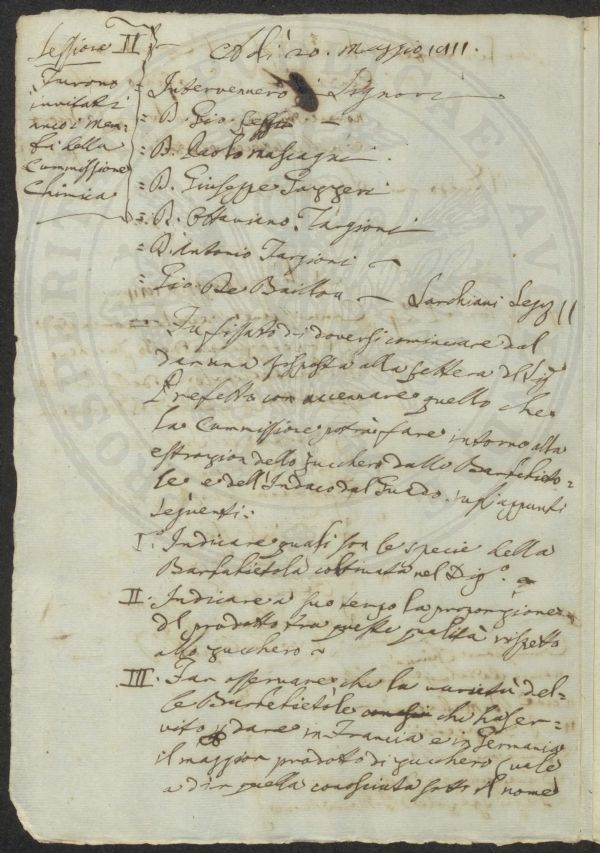 Sessione II
Furono
invitati
anco i Mem-
bri della
Commissione
Chimica
Adì 20. Maggio 1811.
Intervennero i Signori
= D. Gio.
= D. Paolo Mascagni
= D. Giuseppe Gazzeri
= D. Ottaviano Targioni
= D. Antonio Targioni
= Gio. De Baillou — Sarchiani
= Fu fissato di doversi cominciare dal
dar una risposta alla Lettera del Sig.
Prefetto con accennare quello che
la Commissione potrà fare intorno alla
estrazion dello zucchero dalle Barbabieto=
le e dell'Indaco dal Guado, sugl'appunti
seguenti:
I. Indicare quali son le specie della
Barbabietola coltivata nel Dip.o
II. Indicare a suo tempo la proporzione
del prodotto tra queste qualità rispetto
allo zucchero
III. Far osservare che la varietà del-
le Barbabietole che ha ser-
vito a dare in Francia e in Germania
il maggior prodotto di zucchero (vale
a dir quella conosciuta sotto il nome